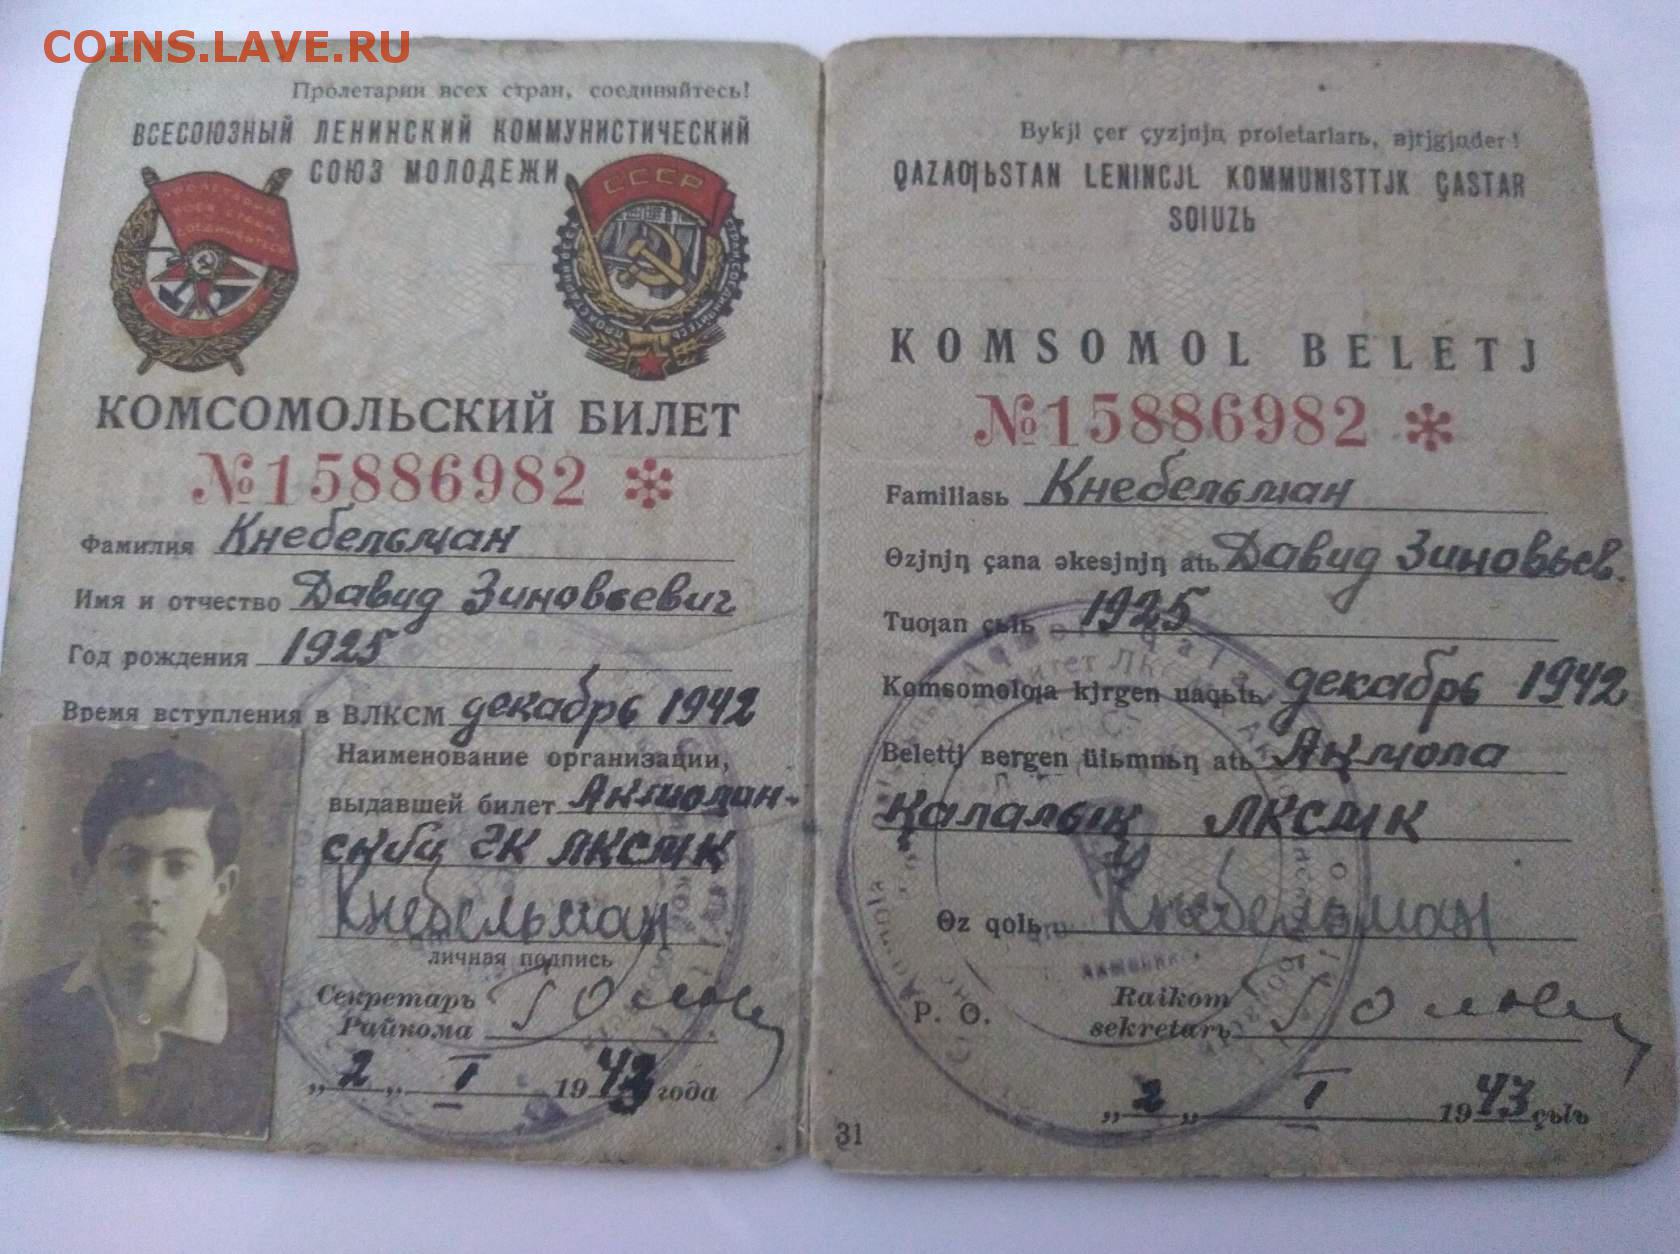 COINS.LAVE.RU
Пролетарии всех стран, соединяйтесь!
ВСЕСОЮЗНЫЙ ЛЕНИНСКИЙ КОММУНИСТИЧЕСКИЙ
СОЮЗ МОЛОДЕЖИ
ПРОЛЕТАРИИ
ВСЕХ СТРАН
СОЕДИНЯЙТЕСЬ
СССР
СССР
КОМСОМОЛЬСКИЙ БИЛЕТ
№15886982 *
Фамилия Кнебельман
Имя и отчество Давид Зиновьевич
Год рождения 1925
Время вступления в ВЛКСМ декабрь 1942
Наименование организации,
выдавшей билет Акмолин-
ский ГК ЛКСМК
Кнебельман
личная подпись
Секретарь
Райкома
„2„ I 1943 года
Bykjl çer çyzjnjꞑ proletarlarь, вjrjgjꞑder!
QAZAƢЬSTAN LENINCJL KOMMUNISTTJK ÇASTAR
SOIUZЬ
KOMSOMOL BELETJ
№15886982 *
Familiasь Кнебельман
Өzjnjꞑ çana əkesjnjꞑ atь Давид Зиновьев.
Tuoƣan çьlь 1925
Komsomolƣa kjrgen uaqьtь декабрь 1942
Belettj вergen üiьmnьꞑ atь Ақмола
Қалалық ЛКСМҚ
Өz qolь Кнебельман
P. O.
Raikom
sekretarь
„2„ I 1943 çьlь
31